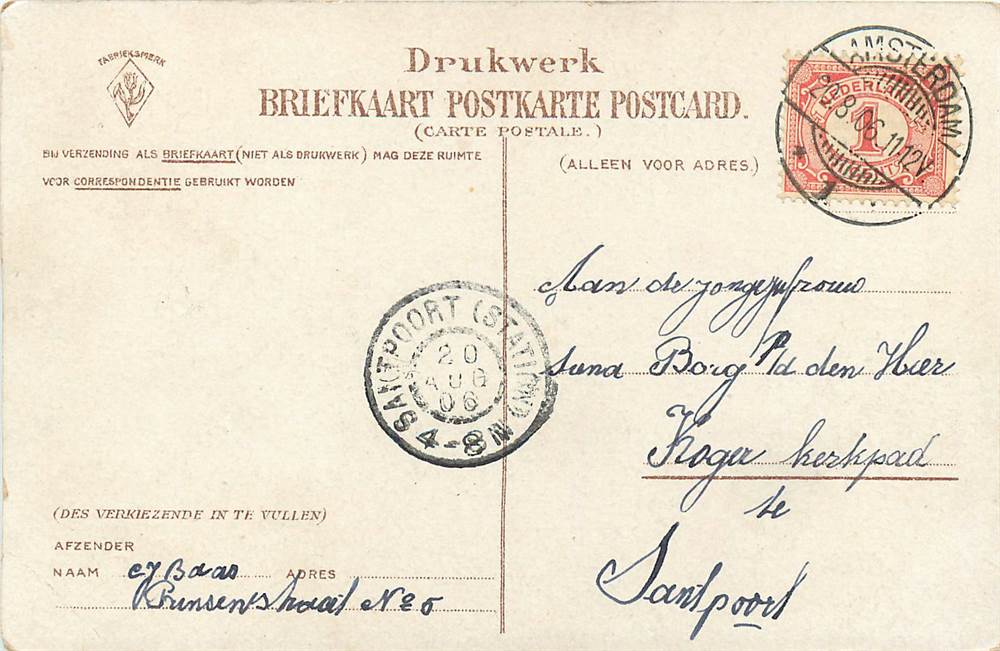 FABRIEKSMERK
Drukwerk
BRIEFKAART POSTKARTE POSTCARD.
(CARTE POSTALE.)
BIJ VERZENDING ALS BRIEFKAART (NIET ALS DRUKWERK) MAG DEZE RUIMTE
VOOR CORRESPONDENTIE GEBRUIKT WORDEN
(ALLEEN VOOR ADRES.)
NEDERLAND
1
AMSTERDAM
8·06 11-12V
Aan de jongejufrouw
Borg P/d den Heer
Koger kerkpad
te
Santpoort
SANTPOORT (STATION)
20
AUG
06
4-8N
(DES VERKIEZENDE IN TE VULLEN)
AFZENDER
NAAM CJ Baas ADRES
No 5